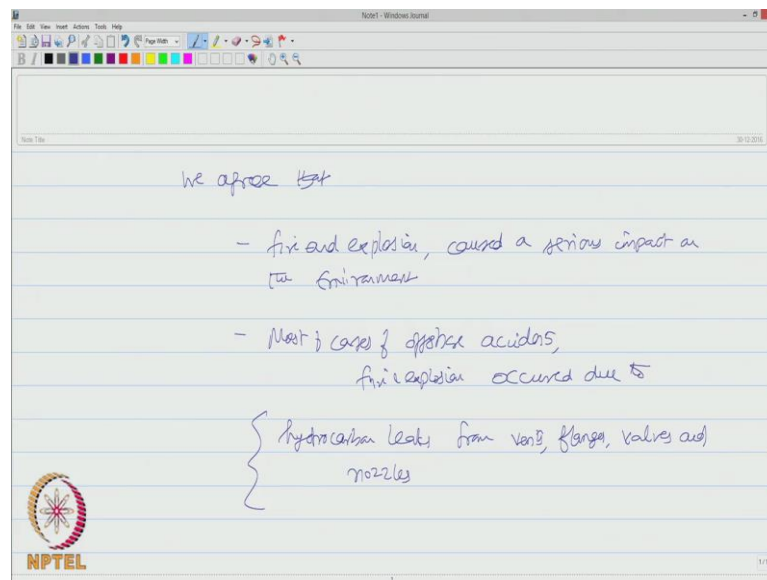 Note1 - Windows Journal
File Edit View Insert Actions Tools Help
Page Width
B I
Note Title
30-12-2016
We agree that
- fire and explosion, caused a serious impact on
the Environment
- Most of cases of offshore accidents,
fire & explosion occured due to
hydrocarbon leaks from vents, flanges, valves and
nozzles
NPTEL
1/1